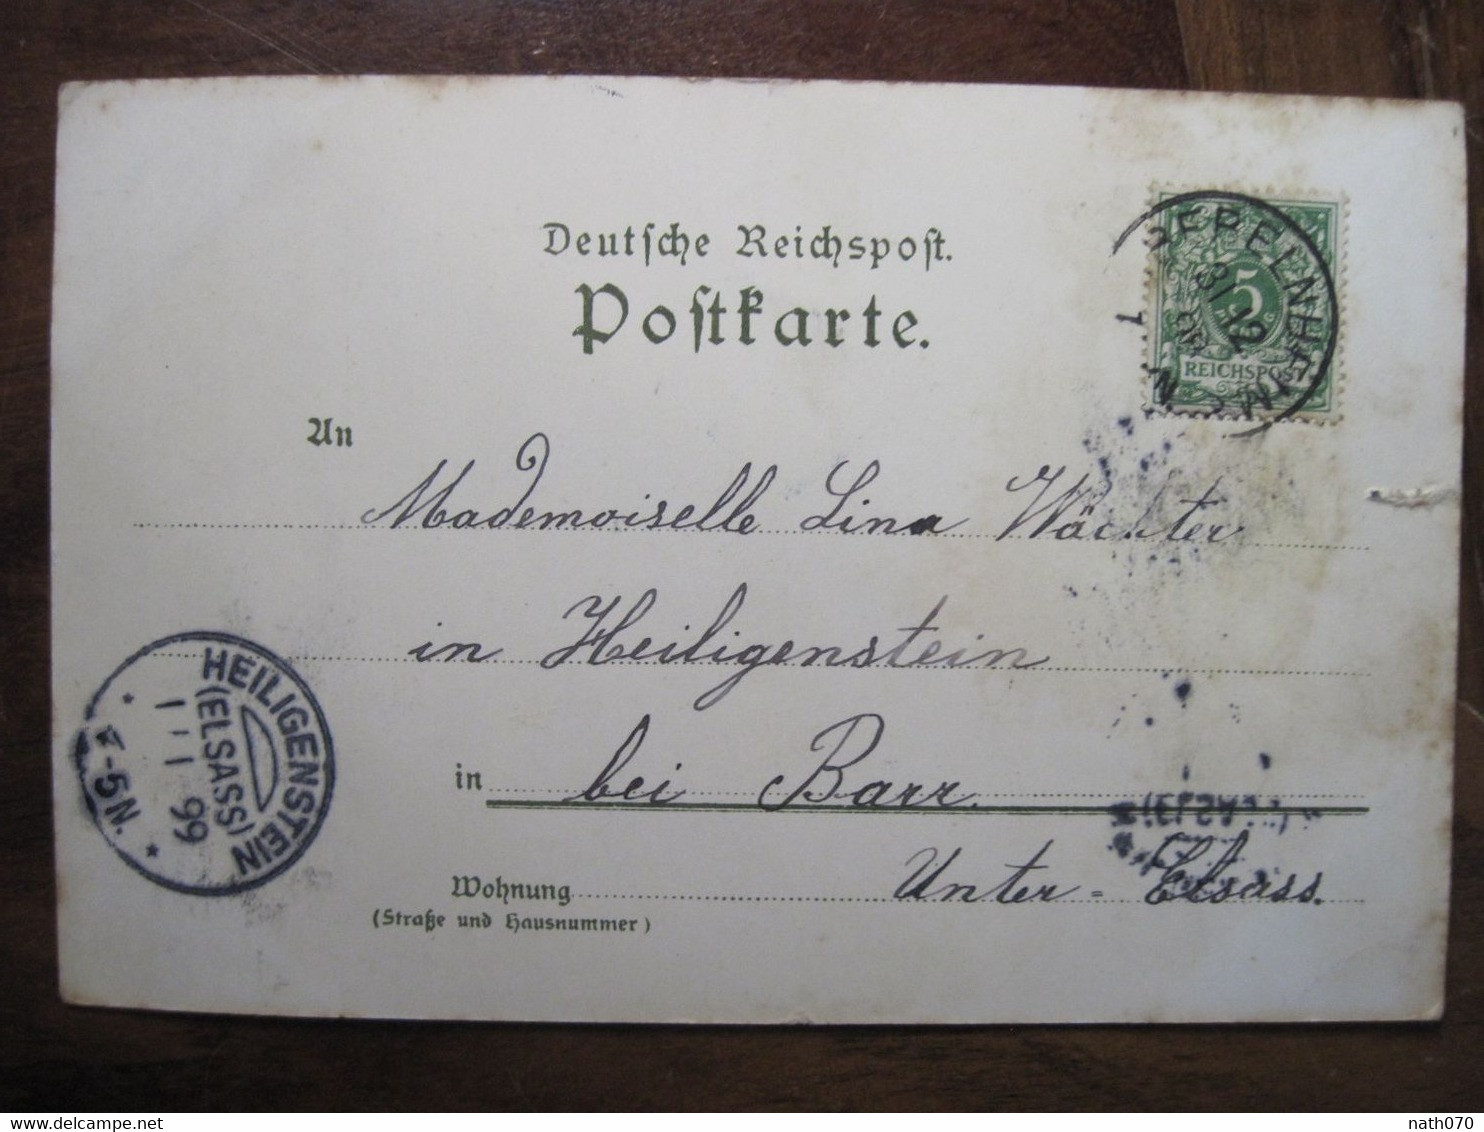 Deutsche Reichspost.
Postkarte.
5
REICHSPOST
31 12
98
An
Mademoiselle Lina Wächter
in Heiligenstein
in bei Barr.
Unter-Elsass.
Wohnung
(Straße und Hausnummer)
HEILIGENSTEIN
(ELSASS)
1 1 99
-5N.
delcampe.net
nath070